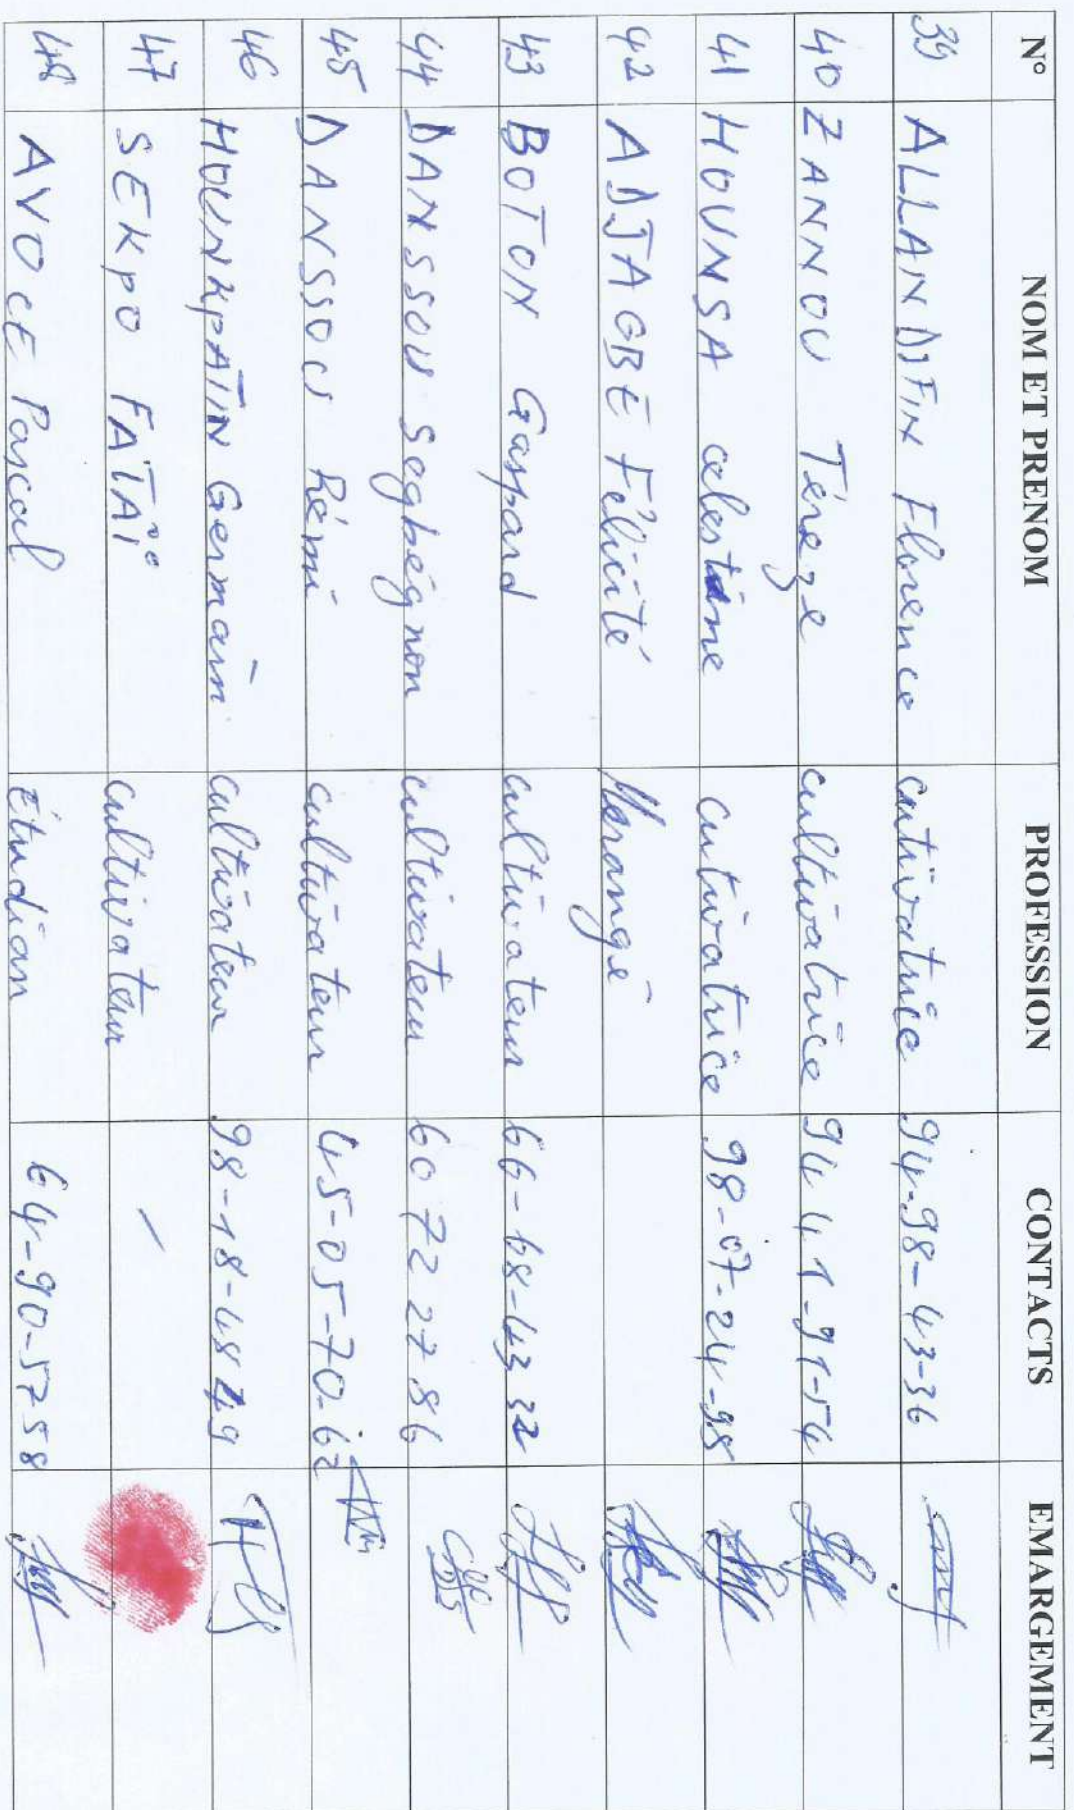 N° NOM ET PRENOM PROFESSION CONTACTS EMARGEMENT
39 ALLANDJFIN Florence cutivatrice 94-98-43-36
40 ZANNOU Téreze cultivatrice 94 41-91-54
41 HOUNSA celestine cutivatrice 98-07-24-98
42 ADJAGBE Félicité Menangè
43 BOTON Gaspard cultivateur 66-68-43 32
44 DANSSOU Segbégnon cultivateur 60 72 27 86
45 DANSSOU Rémi cultivateur 45-05-70-62
46 HOUNKPATIN Germain cultivateur 98-18-48 49
47 SEKPO FATAÏ cultivateur /
48 AVOCE Pascal Etudian 64-90-57 58